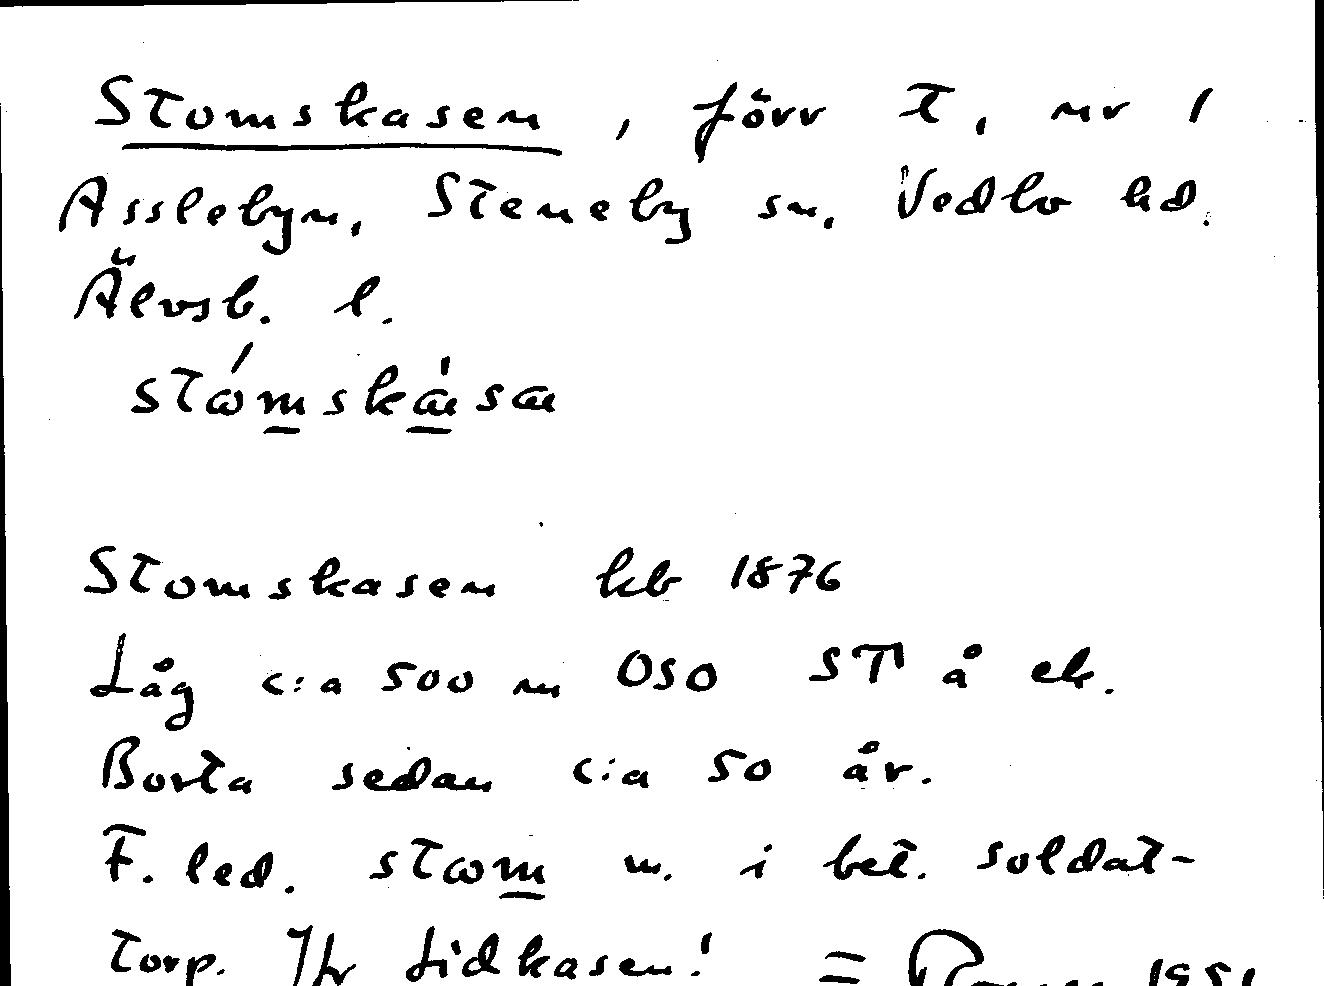 Stomskasen, förr t, nr 1
Asslebyn, Steneby sn, Vedbo hd.
Älvsb. l.
Stomskasen kb 1876
Låg c:a 500 m OSO ST å ek.
Borta sedan c:a 50 år.
F. led. stωm n. i bet. soldat-
torp. Jfr Lidkasen! =